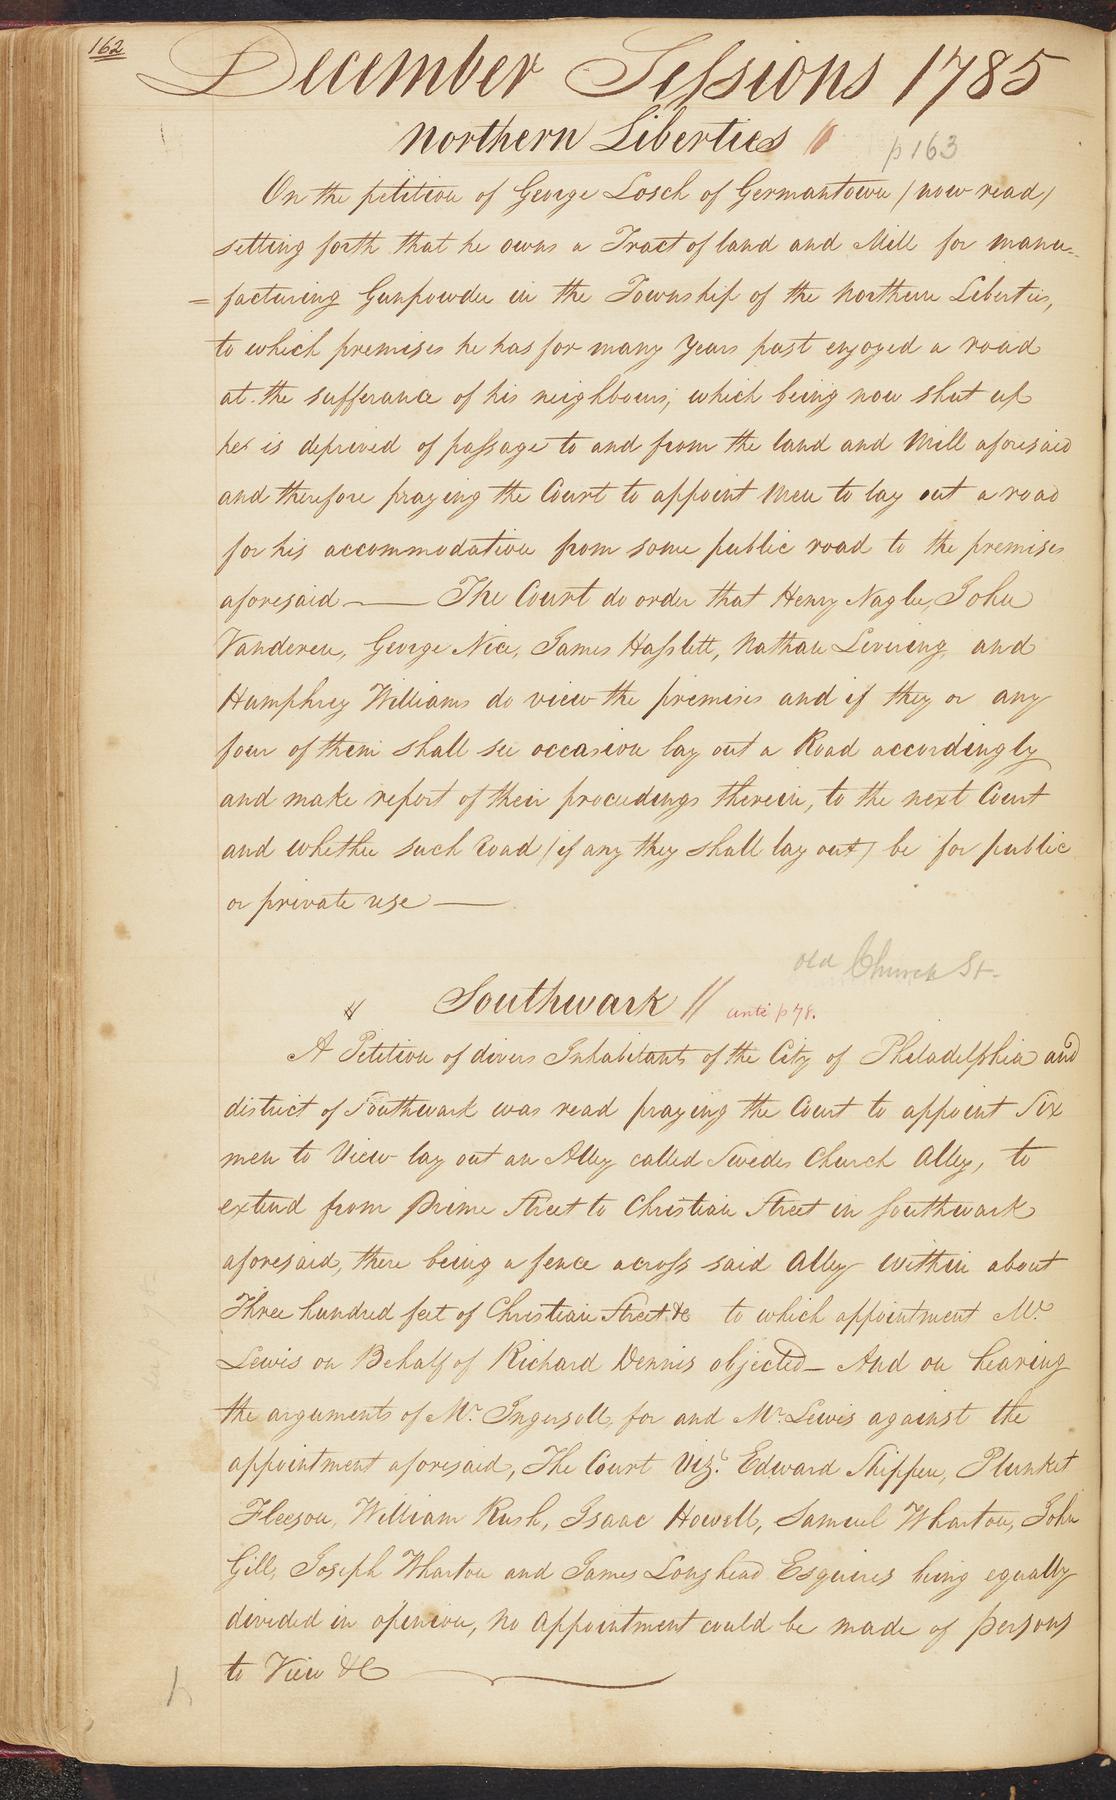 162
December Sessions 1785
Northern Liberties //
p 163
On the petition of George Losch of Germantown (now read)
setting forth that he owns a Tract of land and Mill for manu-
=facturing Gunpowder in the Township of the Northern Liberties,
to which premises he has for many Years past enjoyed a road
at the sufferance of his neighbours; which being now shut up
he is deprived of passage to and from the land and Mill aforesaid
and therefore praying the Court to appoint Men to lay out a road
for his accommodation from some public road to the premises
aforesaid — The Court do order that Henry Nagle, John
Vanderen, George Nice, James Haslett, Nathan Levering and
Humphrey Williams do view the premises and if they or any
four of them shall see occasion lay out a Road accordingly
and make report of their proceedings therein, to the next Court
and whether such Road (if any they shall lay out) be for public
or private use —
old Church St.
Southwark //
ante p 78.
A Petition of divers Inhabitants of the City of Philadelphia and
district of Southwark was read praying the Court to appoint Six
men to View lay out an Alley called Swedes Church Alley, to
extend from Prime Street to Christian Street in Southwark
aforesaid, there being a fence across said Alley within about
Three hundred feet of Christian Street &c to which appointment Mr.
Lewis on Behalf of Richard Dennis objected — And on hearing
the arguments of Mr. Ingersoll for and Mr. Lewis against the
appointment aforesaid, The Court Vizt. Edward Shippen, Plunket
Fleeson, William Rush, Isaac Howell, Samuel Wharton, John
Gill, Joseph Wharton and James Longhead Esquires being equally
divided in opinion, no appointment could be made of persons
to View &c